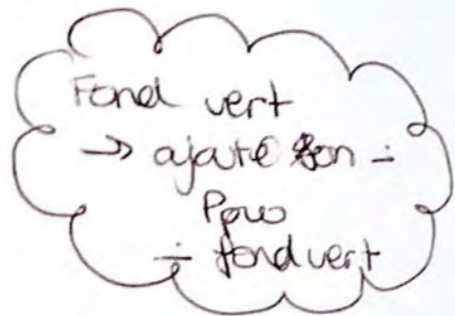 Fond vert
→ ajouté son -
- fond vert